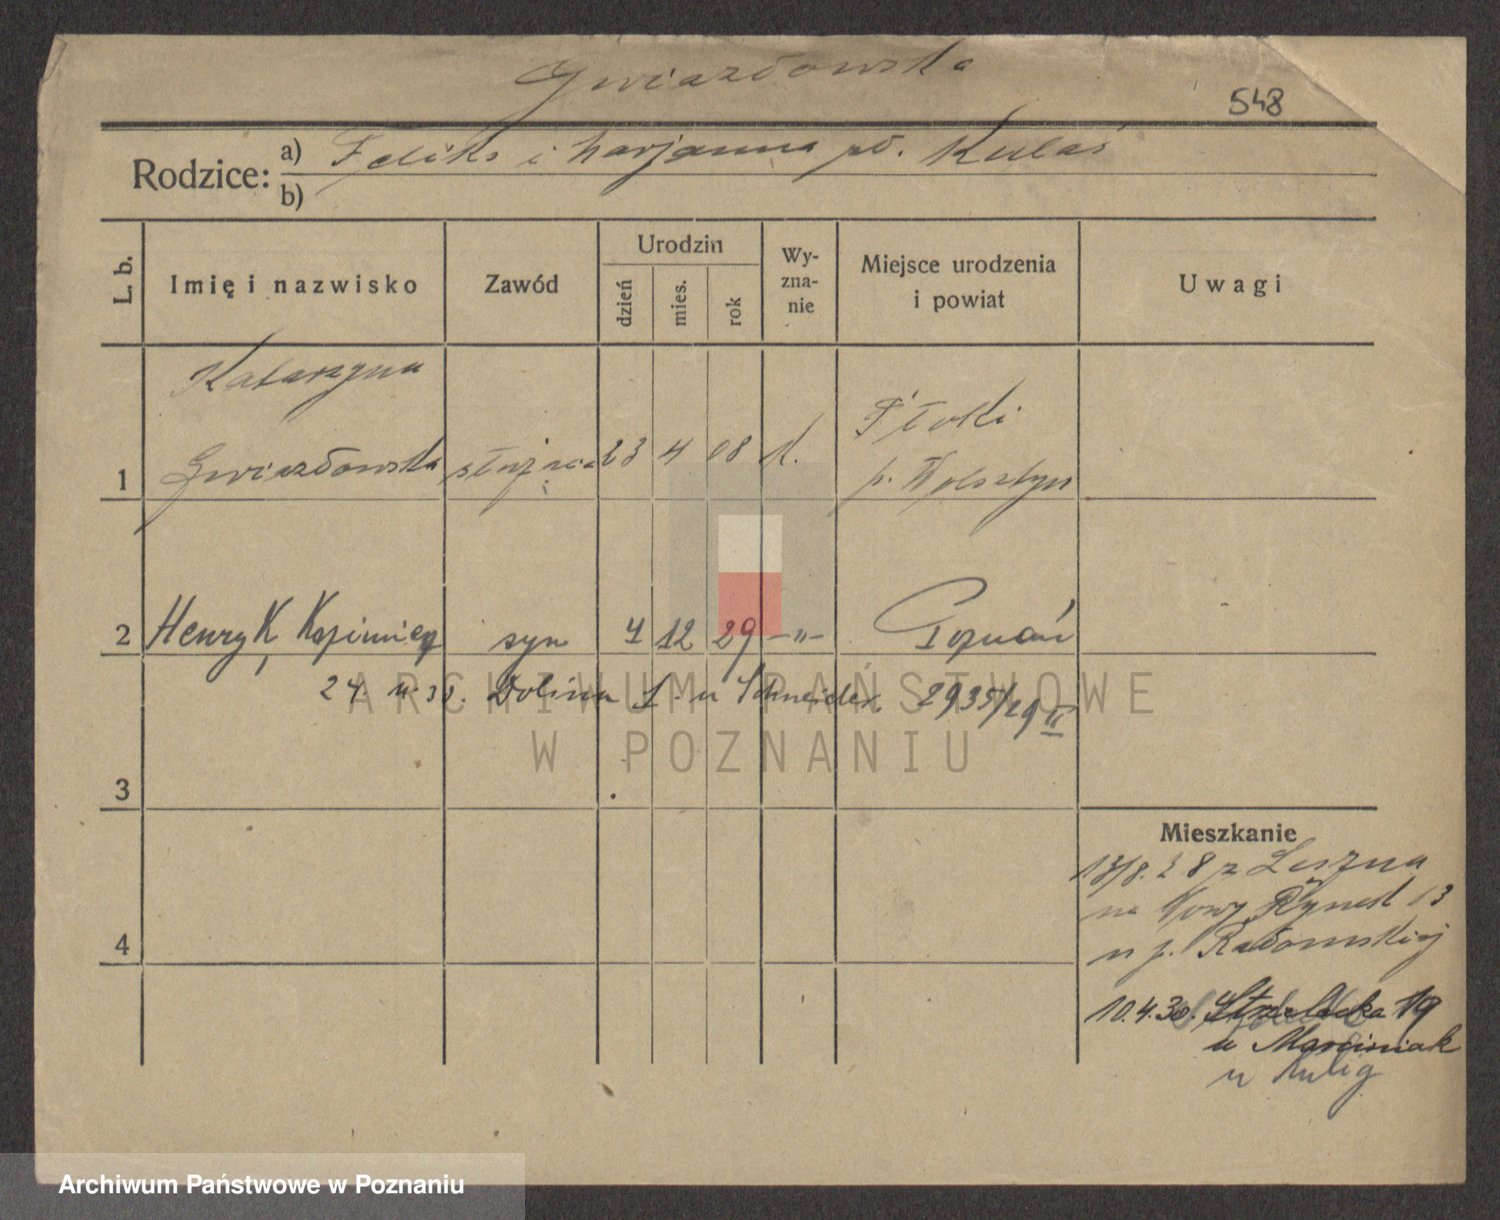 Gwiazdowska
548
Rodzice: a) Feliks i Marjanna zd. Kulas
b)
L. b.
Imię i nazwisko
Zawód
Urodzin
dzień
mies.
rok
Wy-
zna-
nie
Miejsce urodzenia
i powiat
Uwagi
Katarzyna
1 Gwiazdowska służąca 23 4 08 k.
p. Wolsztyn
2 Henryk Kazimierz syn 4 12 29 —"— Poznań
Dolina 1 u Schneider 2935/29 II
3
Mieszkanie
13/8.28 z Leszna
na Nowy Rynek 13
u p. Radomskiej
4
10.4.30. Strzelecka 19
u Marciniak
u Kulig
ARCHIWUM PAŃSTWOWE
W POZNANIU
Archiwum Państwowe w Poznaniu